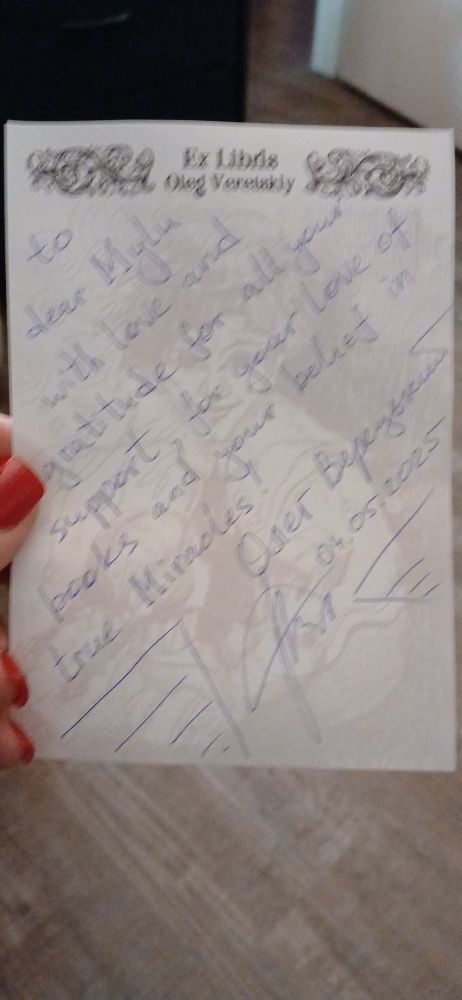 Ex Libris
Oleg Veretskiy
to
dear Mylu
with love and
gratitude for all your
support, for your love of
books and your belief in
true Miracles. Олег Верецкий
04.05.2025